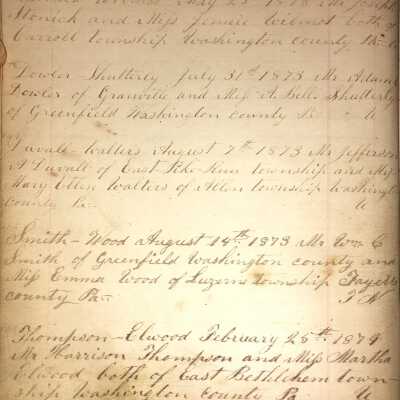 May 23th 1873 Mr Joseph
and Miss Jennie Wilmot both of
Carroll township Washington county Pa
Dowler-Shutterly July 31st 1873 Mr Adam
Dowler of Granville and Miss A Bell Shutterly
of Greenfield Washington County Pa U
Duvall-Walters August 7th 1873 Mr Jefferson
A Duvall of East Pike Run township and Miss
Mary Ellen Walters of Allen township Washingt
county Pa- U
Smith-Wood August 14th 1873 Mr Wm C
Smith of Greenfield Washington county and
Miss Emma Wood of Luzerne township Fayett
county Pa-
Thompson-Elwood February 25th 1874
Mr Harrison Thompson and Miss Martha
Elwood both of East Bethlehem town-
ship Washington county Pa U